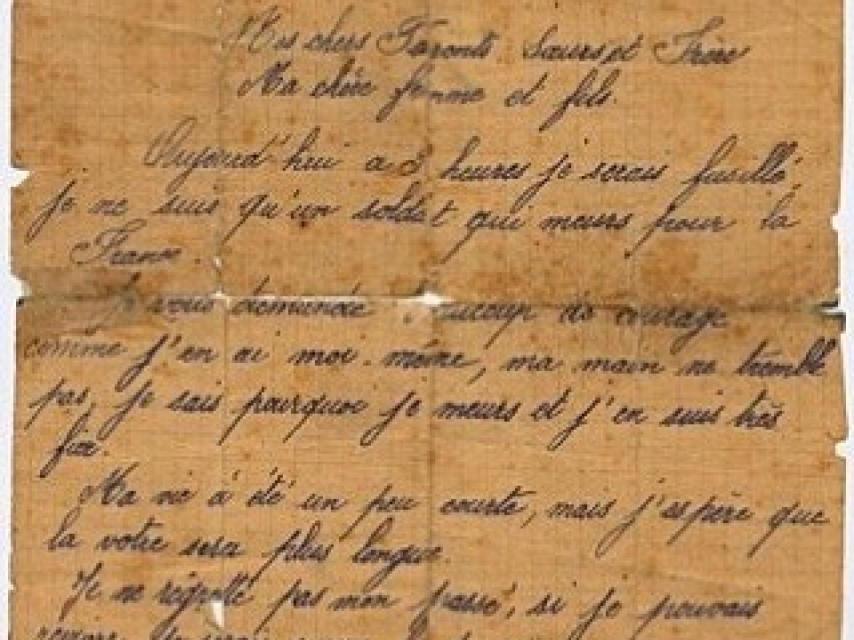 Mes chers Parents Sœurs et Frère
Ma chère femme et fils.
Aujourd'hui a 3 heures je serais fusillé,
je ne suis qu'un soldat qui meurs pour la
France.
Je vous demande beaucoup de courage
comme j'en ai moi-même, ma main ne tremble
pas, je sais pourquoi je meurs et j'en suis très
fier.
Ma vie à été un peu courte, mais j'espère que
la votre sera plus longue.
Je ne regrette pas mon passé, si je pouvais